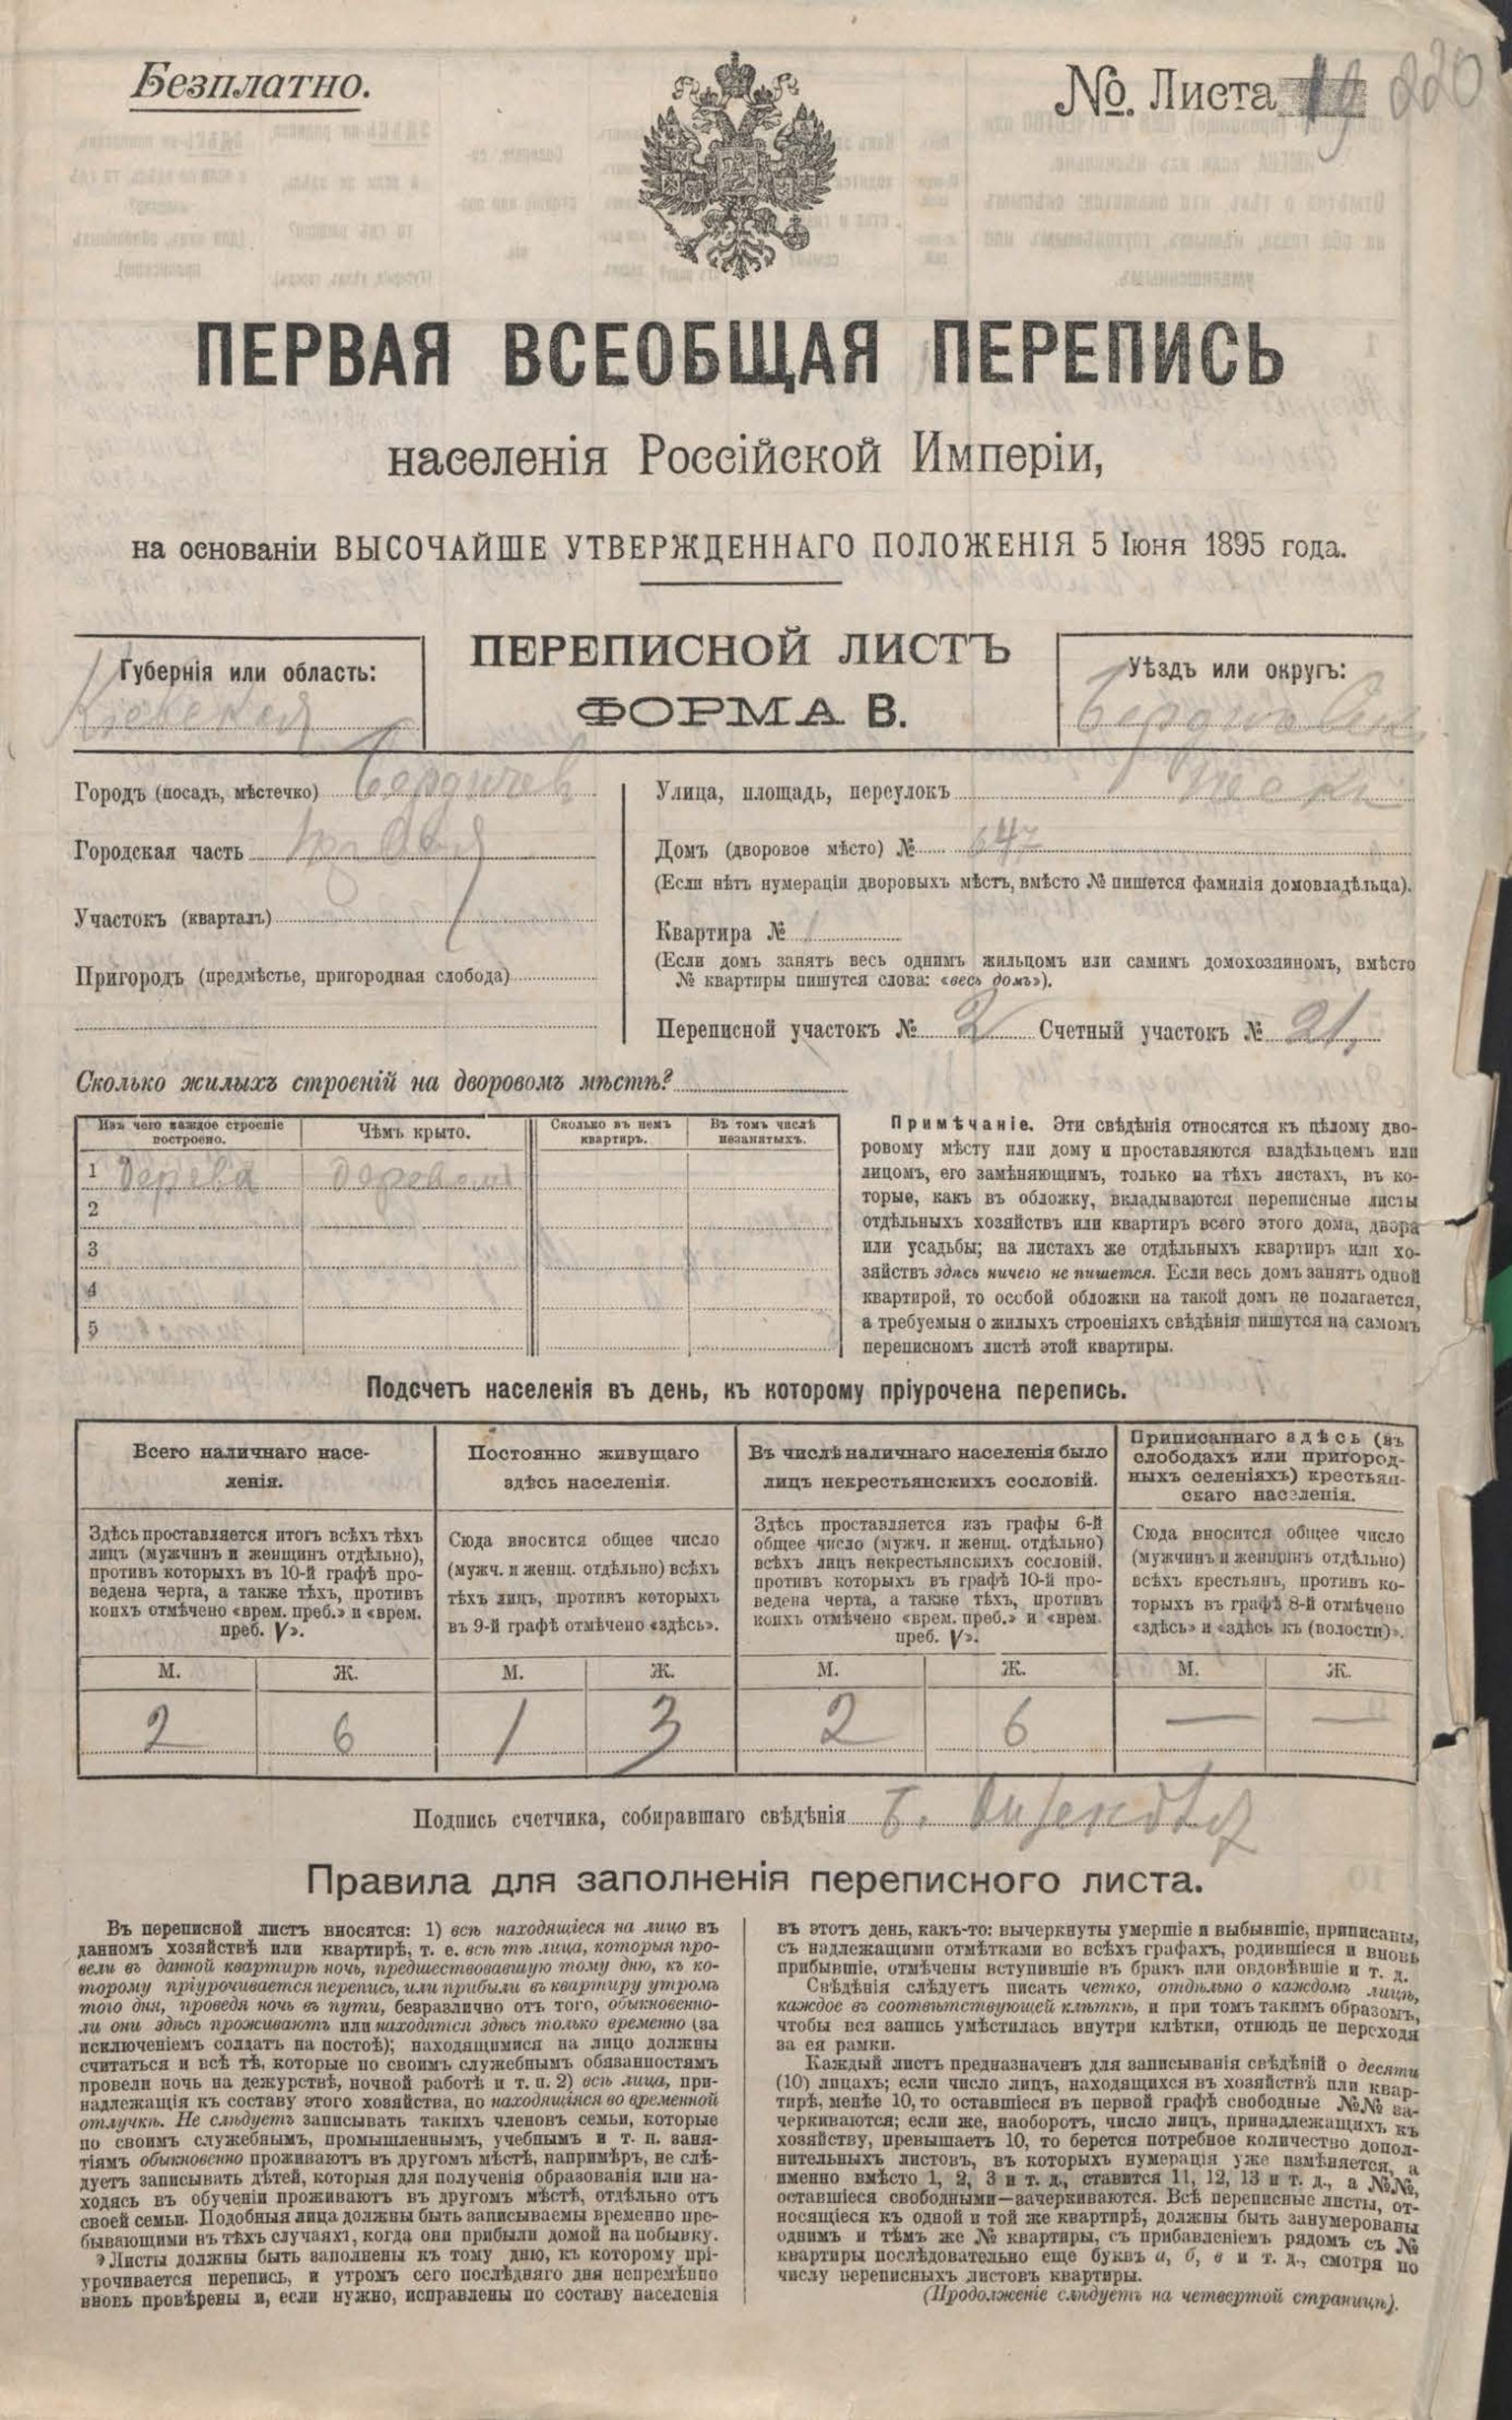 Безплатно.
№. Листа 19 220
ПЕРВАЯ ВСЕОБЩАЯ ПЕРЕПИСЬ
населенія Россійской Имперіи,
на основаніи ВЫСОЧАЙШЕ УТВЕРЖДЕННАГО ПОЛОЖЕНІЯ 5 Іюня 1895 года.
ПЕРЕПИСНОЙ ЛИСТЪ
ФОРМА В.
Губернія или область:
Кіевская
Уѣздъ или округъ:
Городъ (посадъ, мѣстечко) Бердичев
Городская часть
Участокъ (кварталъ)
Пригородъ (предмѣстье, пригородная слобода)
Улица, площадь, переулокъ Пески
Домъ (дворовое мѣсто) № 647
(Если нѣтъ нумераціи дворовыхъ мѣстъ, вмѣсто № пишется фамилія домовладѣльца).
Квартира № 1
(Если домъ занятъ весь однимъ жильцомъ или самимъ домохозяиномъ, вмѣсто
№ квартиры пишутся слова: «весь домъ»).
Переписной участокъ № 2 Счетный участокъ № 21,
Сколько жилыхъ строеній на дворовомъ мѣстѣ?
Изъ чего каждое строеніе построено. Чѣмъ крыто. Сколько въ немъ квартиръ. Въ томъ числѣ незанятыхъ.
1 Дерева
2
3
4
5
Примѣчаніе. Эти свѣдѣнія относятся къ цѣлому дво-
ровому мѣсту или дому и проставляются владѣльцемъ или
лицомъ, его замѣняющимъ, только на тѣхъ листахъ, въ ко-
торые, какъ въ обложку, вкладываются переписные листы
отдѣльныхъ хозяйствъ или квартиръ всего этого дома, двора
или усадьбы; на листахъ же отдѣльныхъ квартиръ или хо-
зяйствъ здѣсь ничего не пишется. Если весь домъ занятъ одной
квартирой, то особой обложки на такой домъ не полагается,
а требуемыя о жилыхъ строеніяхъ свѣдѣнія пишутся на самомъ
переписномъ листѣ этой квартиры.
Подсчетъ населенія въ день, къ которому пріурочена перепись.
Всего наличнаго насе-
ленія.
Здѣсь проставляется итогъ всѣхъ тѣхъ
лицъ (мужчинъ и женщинъ отдѣльно),
противъ которыхъ въ 10-й графѣ про-
ведена черта, а также тѣхъ, противъ
коихъ отмѣчено «врем. преб.» и «врем.
преб. V».
М. Ж.
2 6
Постоянно живущаго
здѣсь населенія.
Сюда вносится общее число
(мужч. и женщ. отдѣльно) всѣхъ
тѣхъ лицъ, противъ которыхъ
въ 9-й графѣ отмѣчено «здѣсь».
М. Ж.
1 3
Въ числѣ наличнаго населенія было
лицъ некрестьянскихъ сословій.
Здѣсь проставляется изъ графы 6-й
общее число (мужч. и женщ. отдѣльно)
всѣхъ лицъ некрестьянскихъ сословій.
противъ которыхъ въ графѣ 10-й про-
ведена черта, а также тѣхъ, противъ
коихъ отмѣчено «врем. преб.» и «врем.
преб. V».
М. Ж.
2 6
Приписаннаго здѣсь (въ
слободахъ или пригород-
ныхъ селеніяхъ) крестьян-
скаго населенія.
Сюда вносится общее число
(мужчинъ и женщинъ отдѣльно)
всѣхъ крестьянъ, противъ ко-
торыхъ въ графѣ 8-й отмѣчено
«здѣсь» и «здѣсь къ (волости)».
М. Ж.
— —
Подпись счетчика, собиравшаго свѣдѣнія
Правила для заполненія переписного листа.
Въ переписной листъ вносятся: 1) всѣ находящіеся на лицо въ
данномъ хозяйствѣ или квартирѣ, т. е. всѣ тѣ лица, которыя про-
вели въ данной квартирѣ ночь, предшествовавшую тому дню, къ ко-
торому пріурочивается перепись, или прибыли въ квартиру утромъ
того дня, проведя ночь въ пути, безразлично отъ того, обыкновенно-
ли они здѣсь проживаютъ или находятся здѣсь только временно (за
исключеніемъ солдатъ на постоѣ); находящимися на лицо должны
считаться и всѣ тѣ, которые по своимъ служебнымъ обязанностямъ
провели ночь на дежурствѣ, ночной работѣ и т. п. 2) всѣ лица, при-
надлежащія къ составу этого хозяйства, но находящіяся во временной
отлучкѣ. Не слѣдуетъ записывать такихъ членовъ семьи, которые
по своимъ служебнымъ, промышленнымъ, учебнымъ и т. п. заня-
тіямъ обыкновенно проживаютъ въ другомъ мѣстѣ, напримѣръ, не слѣ-
дуетъ записывать дѣтей, которыя для полученія образованія или на-
ходясь въ обученіи проживаютъ въ другомъ мѣстѣ, отдѣльно отъ
своей семьи. Подобныя лица должны быть записываемы временно пре-
бывающими въ тѣхъ случаяхъ, когда они прибыли домой на побывку.
Листы должны быть заполнены къ тому дню, къ которому прі-
урочивается перепись, и утромъ сего послѣдняго дня непремѣнно
вновь провѣрены и, если нужно, исправлены по составу населенія
въ этотъ день, какъ-то: вычеркнуты умершіе и выбывшіе, приписаны,
съ надлежащими отмѣтками во всѣхъ графахъ, родившіеся и вновь
прибывшіе, отмѣчены вступившіе въ бракъ или овдовѣвшіе и т. д.
Свѣдѣнія слѣдуетъ писать четко, отдѣльно о каждомъ лицѣ,
каждое въ соотвѣтствующей клѣткѣ, и при томъ такимъ образомъ,
чтобы вся запись умѣстилась внутри клѣтки, отнюдь не переходя
за ея рамки.
Каждый листъ предназначенъ для записыванія свѣдѣній о десяти
(10) лицахъ; если число лицъ, находящихся въ хозяйствѣ или квар-
тирѣ, менѣе 10, то оставшіеся въ первой графѣ свободные №№ за-
черкиваются; если же, наоборотъ, число лицъ, принадлежащихъ къ
хозяйству, превышаетъ 10, то берется потребное количество допол-
нительныхъ листовъ, въ которыхъ нумерація уже измѣняется, а
именно вмѣсто 1, 2, 3 и т. д., ставится 11, 12, 13 и т. д., а №№,
оставшіеся свободными—зачеркиваются. Всѣ переписные листы, от-
носящіеся къ одной и той же квартирѣ, должны быть занумерованы
однимъ и тѣмъ же № квартиры, съ прибавленіемъ рядомъ съ №
квартиры послѣдовательно еще буквъ а, б, в и т. д., смотря по
числу переписныхъ листовъ квартиры.
(Продолженіе слѣдуетъ на четвертой страницѣ).